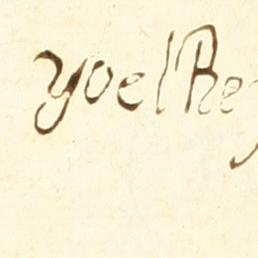 yo el Re